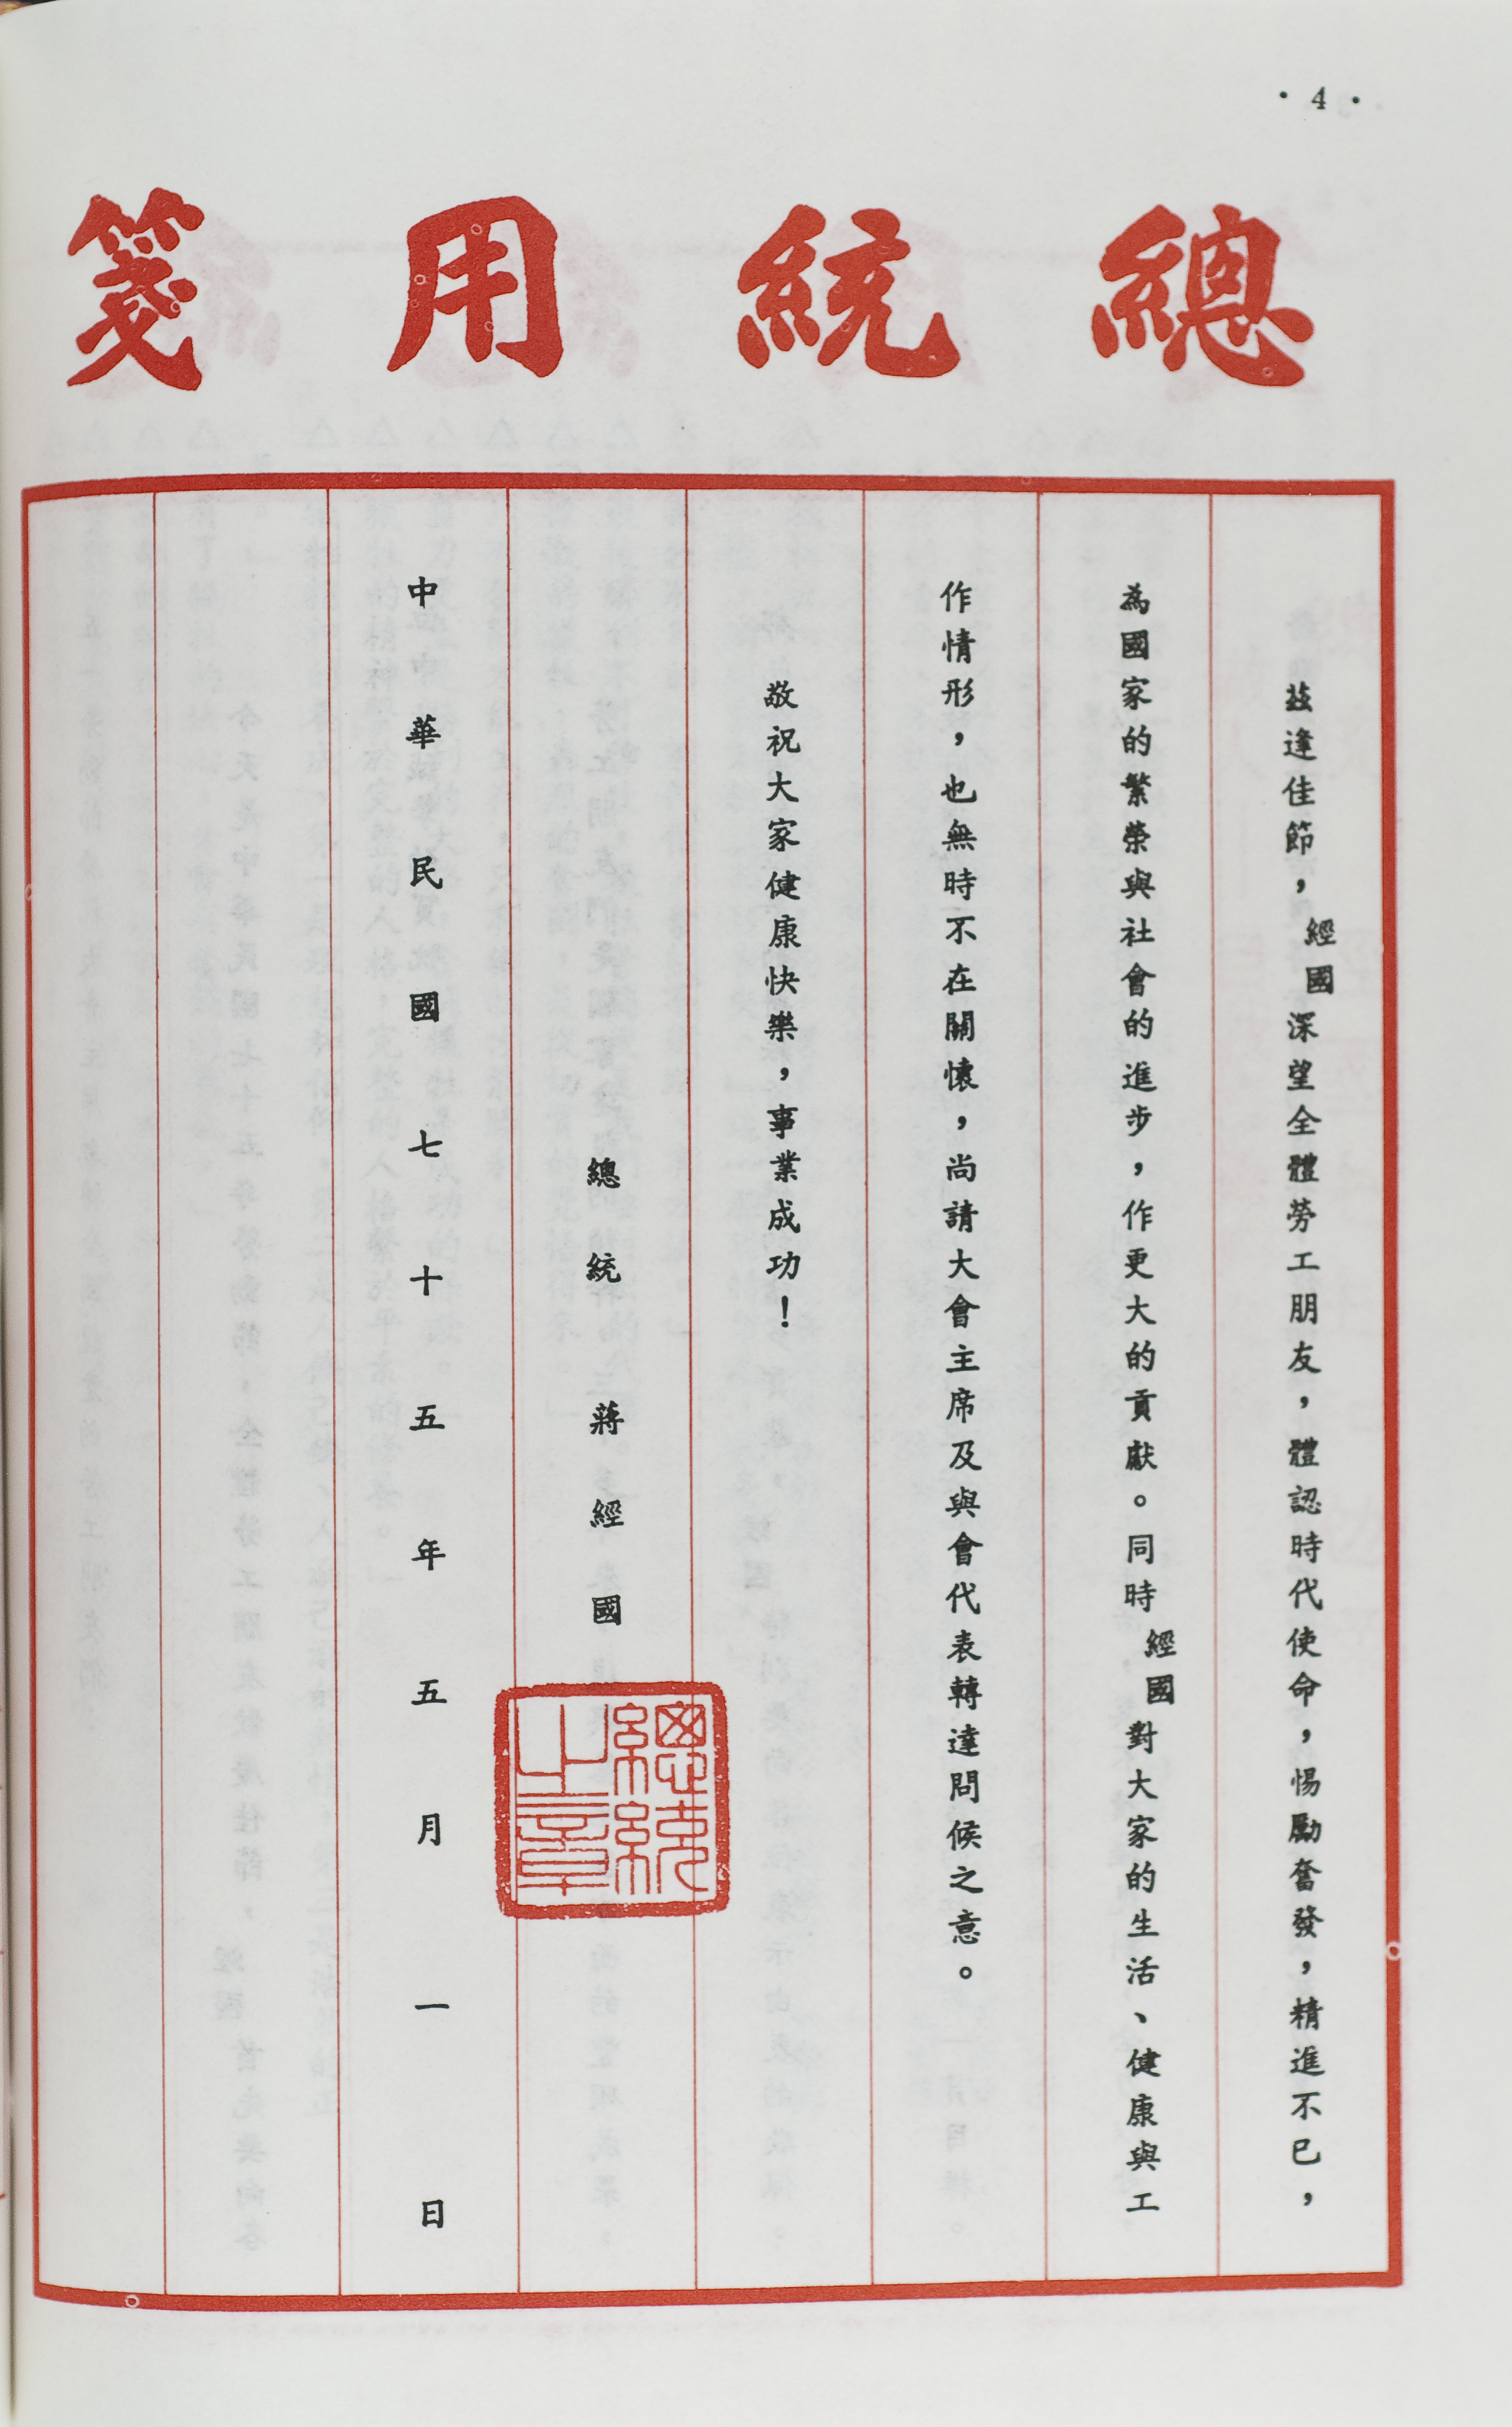 · 4 ·
總統用箋
茲逢佳節，經國深望全體勞工朋友，體認時代使命，惕勵奮發，精進不已，
為國家的繁榮與社會的進步，作更大的貢獻。同時經國對大家的生活、健康與工
作情形，也無時不在關懷，尚請大會主席及與會代表轉達問候之意。
敬祝大家健康快樂，事業成功！
總統 蔣經國
總統之章
中華民國七十五年五月一日